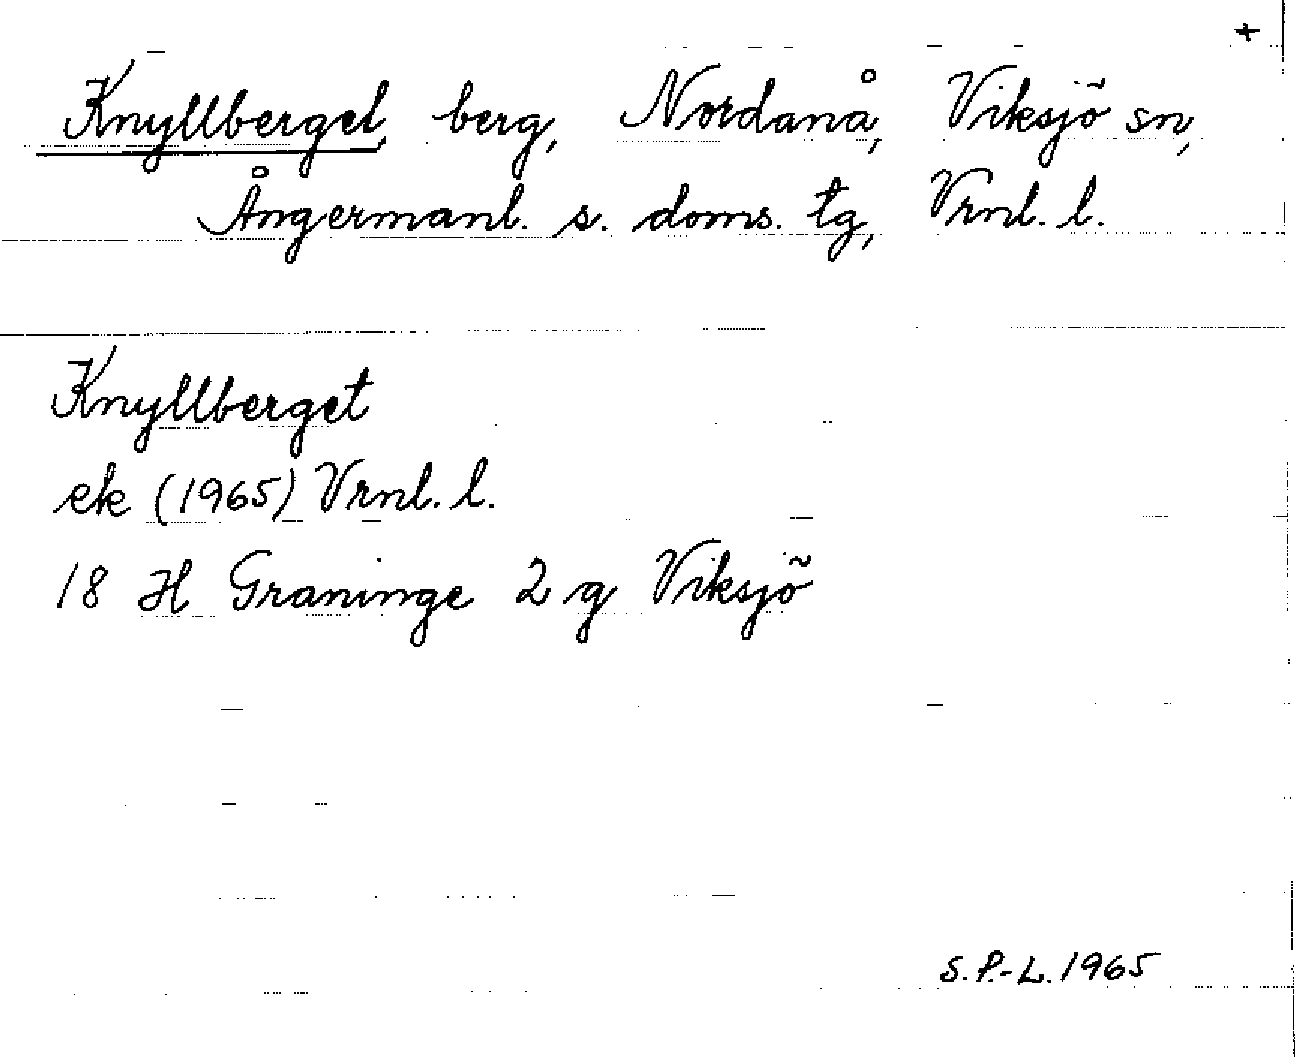 +
Knyllberget, berg, Nordanå, Viksjö sn,
Ångermanl. s. doms. tg, Vrnl. l.
Knyllberget
ek (1965) Vrnl. l.
18 H Graninge 2 g Viksjö
S. P.-L. 1965